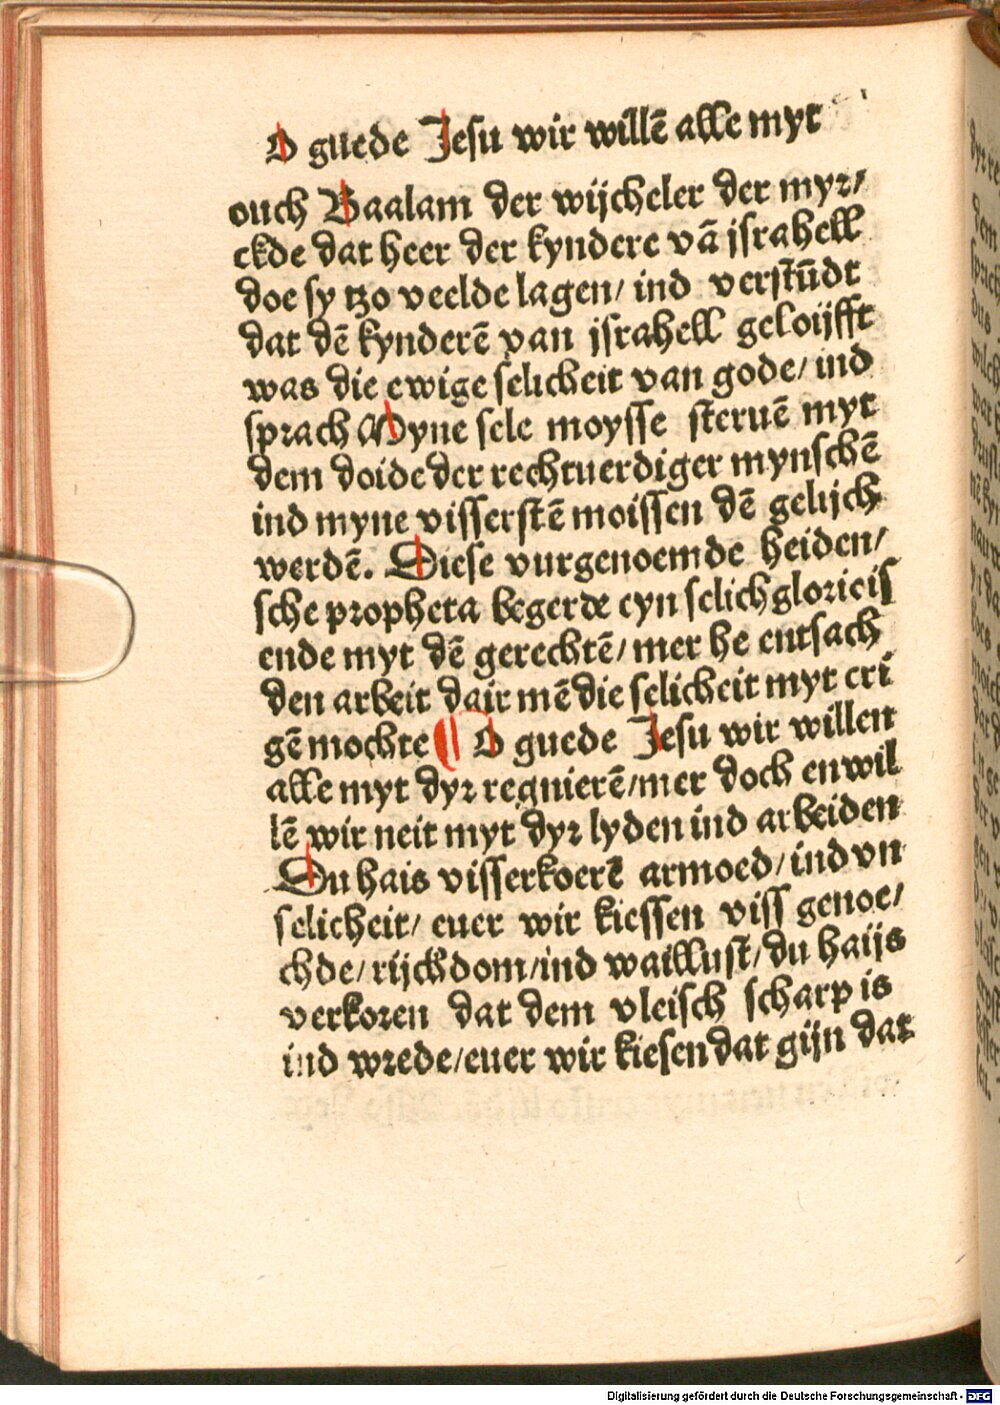 O guede Jesu wir willē alle myt
ouch Baalam der wijcheler der myr/
ckde dat heer der kyndere vā jsrahell
doe sy tzo veelde lagen/ ind verstūdt
dat dē kynderē van jsrahell geloijfft
was die ewige selicheit van gode/ ind
sprach Myne sele moysse steruē myt
dem doide der rechtuerdiger mynschē
ind myne visserstē moissen dē gelijch
werdē. Diese vurgenoemde heiden/
sche propheta begerde eyn selich gloricis
ende myt dē gerechtē/ mer he entsach
den arbeit dair mē die selicheit myt cri
gē mochte ¶ O guede Jesu wir willen
alle myt dyr regnierē/mer doch en wil
lē wir neit myt dyr lyden ind arbeiden
Du hais visserkoerē armoed/ ind vn
selicheit/ euer wir kiessen viss genoe/
chde/ rijckdom/ind waillust/ du haijs
verkoren dat dem vleisch scharp is
ind wrede/euer wir kiesen dat gijn dat
Digitalisierung gefördert durch die Deutsche Forschungsgemeinschaft - DFG